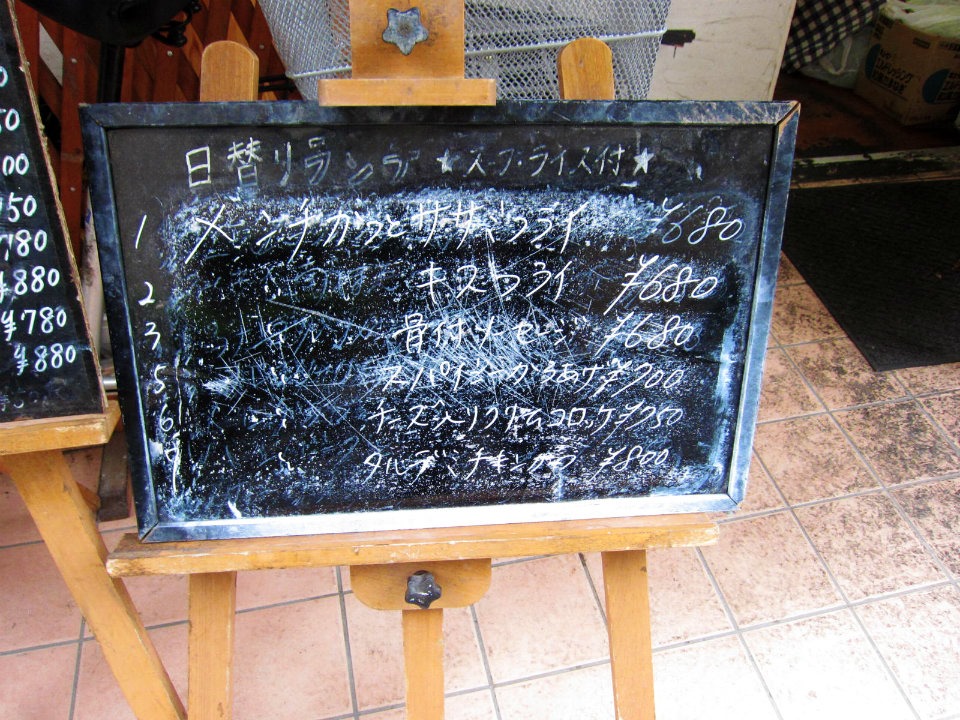 50
00
50
780
¥880
¥780
¥880
日替りランチ ★スープ・ライス付★
1 メンチかつとササミフライ ¥680
2 〃 キスフライ ¥680
3 〃 骨付ソーセージ ¥680
5 〃 スパイシーから揚げ ¥700
6 〃 チーズ入りクリームコロッケ ¥750
〃 タルタルチキンカツ ¥800